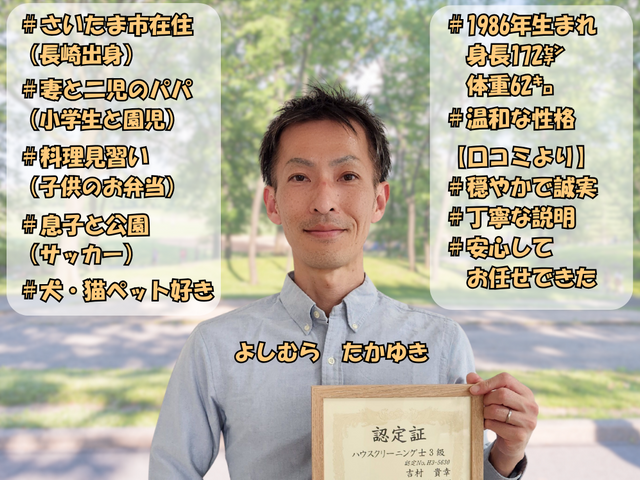 #さいたま市在住
(長崎出身)
#妻と二児のパパ
(小学生と園児)
#料理見習い
(子供のお弁当)
#息子と公園
(サッカー)
#犬・猫ペット好き
#1986年生まれ
身長172㌢
体重62㌔
#温和な性格
【口コミより】
#穏やかで誠実
#丁寧な説明
#安心して
お任せできた
よしむら たかゆき
認定証
ハウスクリーニング士3級
認定No.H3-5630
吉村 貴幸